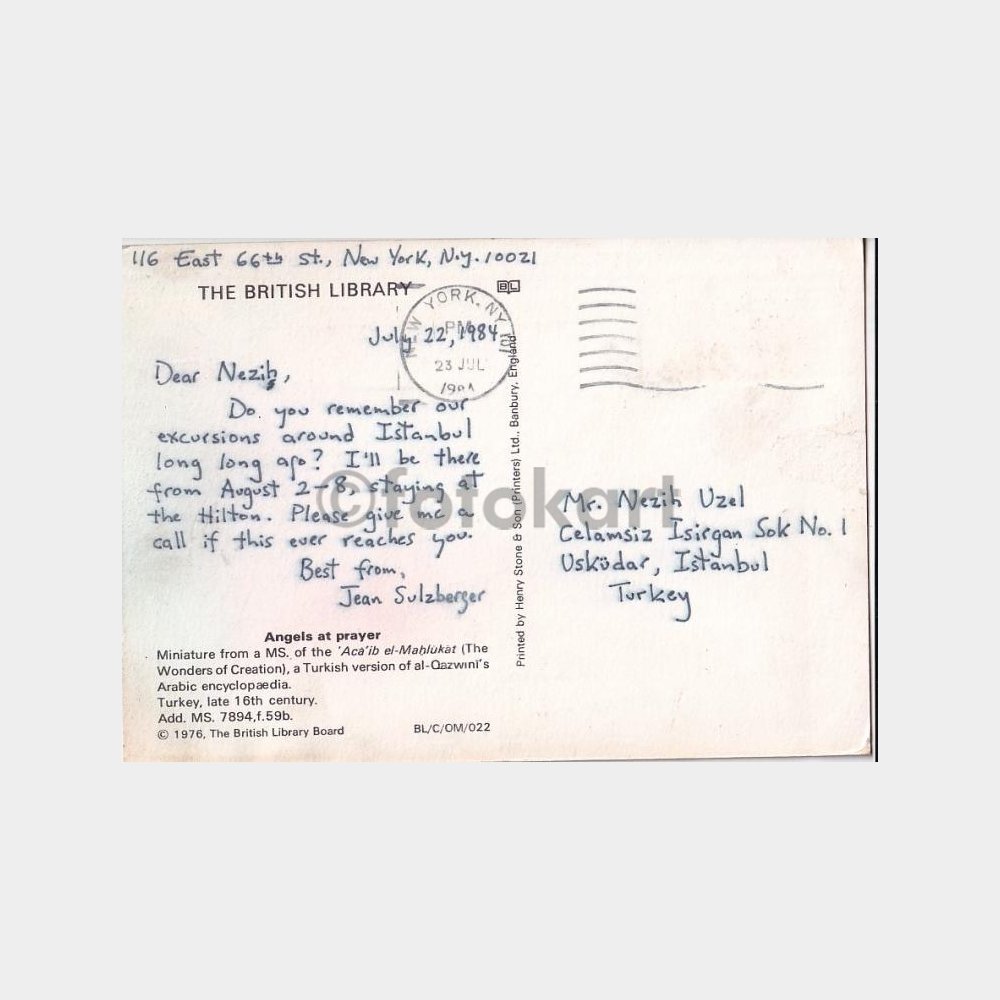 116 East 66th St., New York, N.Y. 10021
THE BRITISH LIBRARY
BL
NEW YORK, NY 101
PM
23 JUL
July 22, 1984
Dear Nezih,
Do you remember our
excursions around Istanbul
long long ago? I'll be there
from August 2-8, staying at
the Hilton. Please give me a
call if this ever reaches you.
Best from,
Jean Sulzberger
Angels at prayer
Miniature from a MS. of the 'Acā'ib el-Maḫlukat (The
Wonders of Creation), a Turkish version of al-Qazwini's
Arabic encyclopædia.
Turkey, late 16th century.
Add. MS. 7894,f.59b.
© 1976, The British Library Board
BL/C/OM/022
Printed by Henry Stone & Son (Printers) Ltd., Banbury, England
Mr. Nezih Uzel
Celamsiz Isirgan Sok No. 1
Usküdar, Istanbul
Turkey
©fotokart